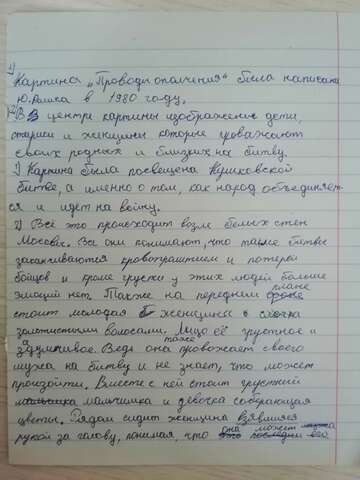 1)
Картина „Проводы ополчения“ была написана
Ю. Ракша в 1980 году.
2) В центре картины изображение дети,
старики и женщины которые провожают
своих родных и близких на битву.
1) Картина была посвещена Куликовской
битве, а именно о том, как народ объединяет-
ся и идет на войну.
2) Всё это происходит возле белых стен
Москвы. Все они понимают, что такие битвы
заканчиваются кровопролитием и потерей
бойцов и кроме грусти у этих людей больше
эмоций нет. Также на переднем плане
стоит молодая женщина с
золотистыми волосами. Лицо её грустное и
задумчивое. Ведь она тоже провожает своего
мужа на битву и не знает, что может
произойти. Вместе с ней стоит грустный
мальчишка и девочка собирающая
цветы. Рядом сидит женщина взявшаяся
рукой за голову, понимая, что она может